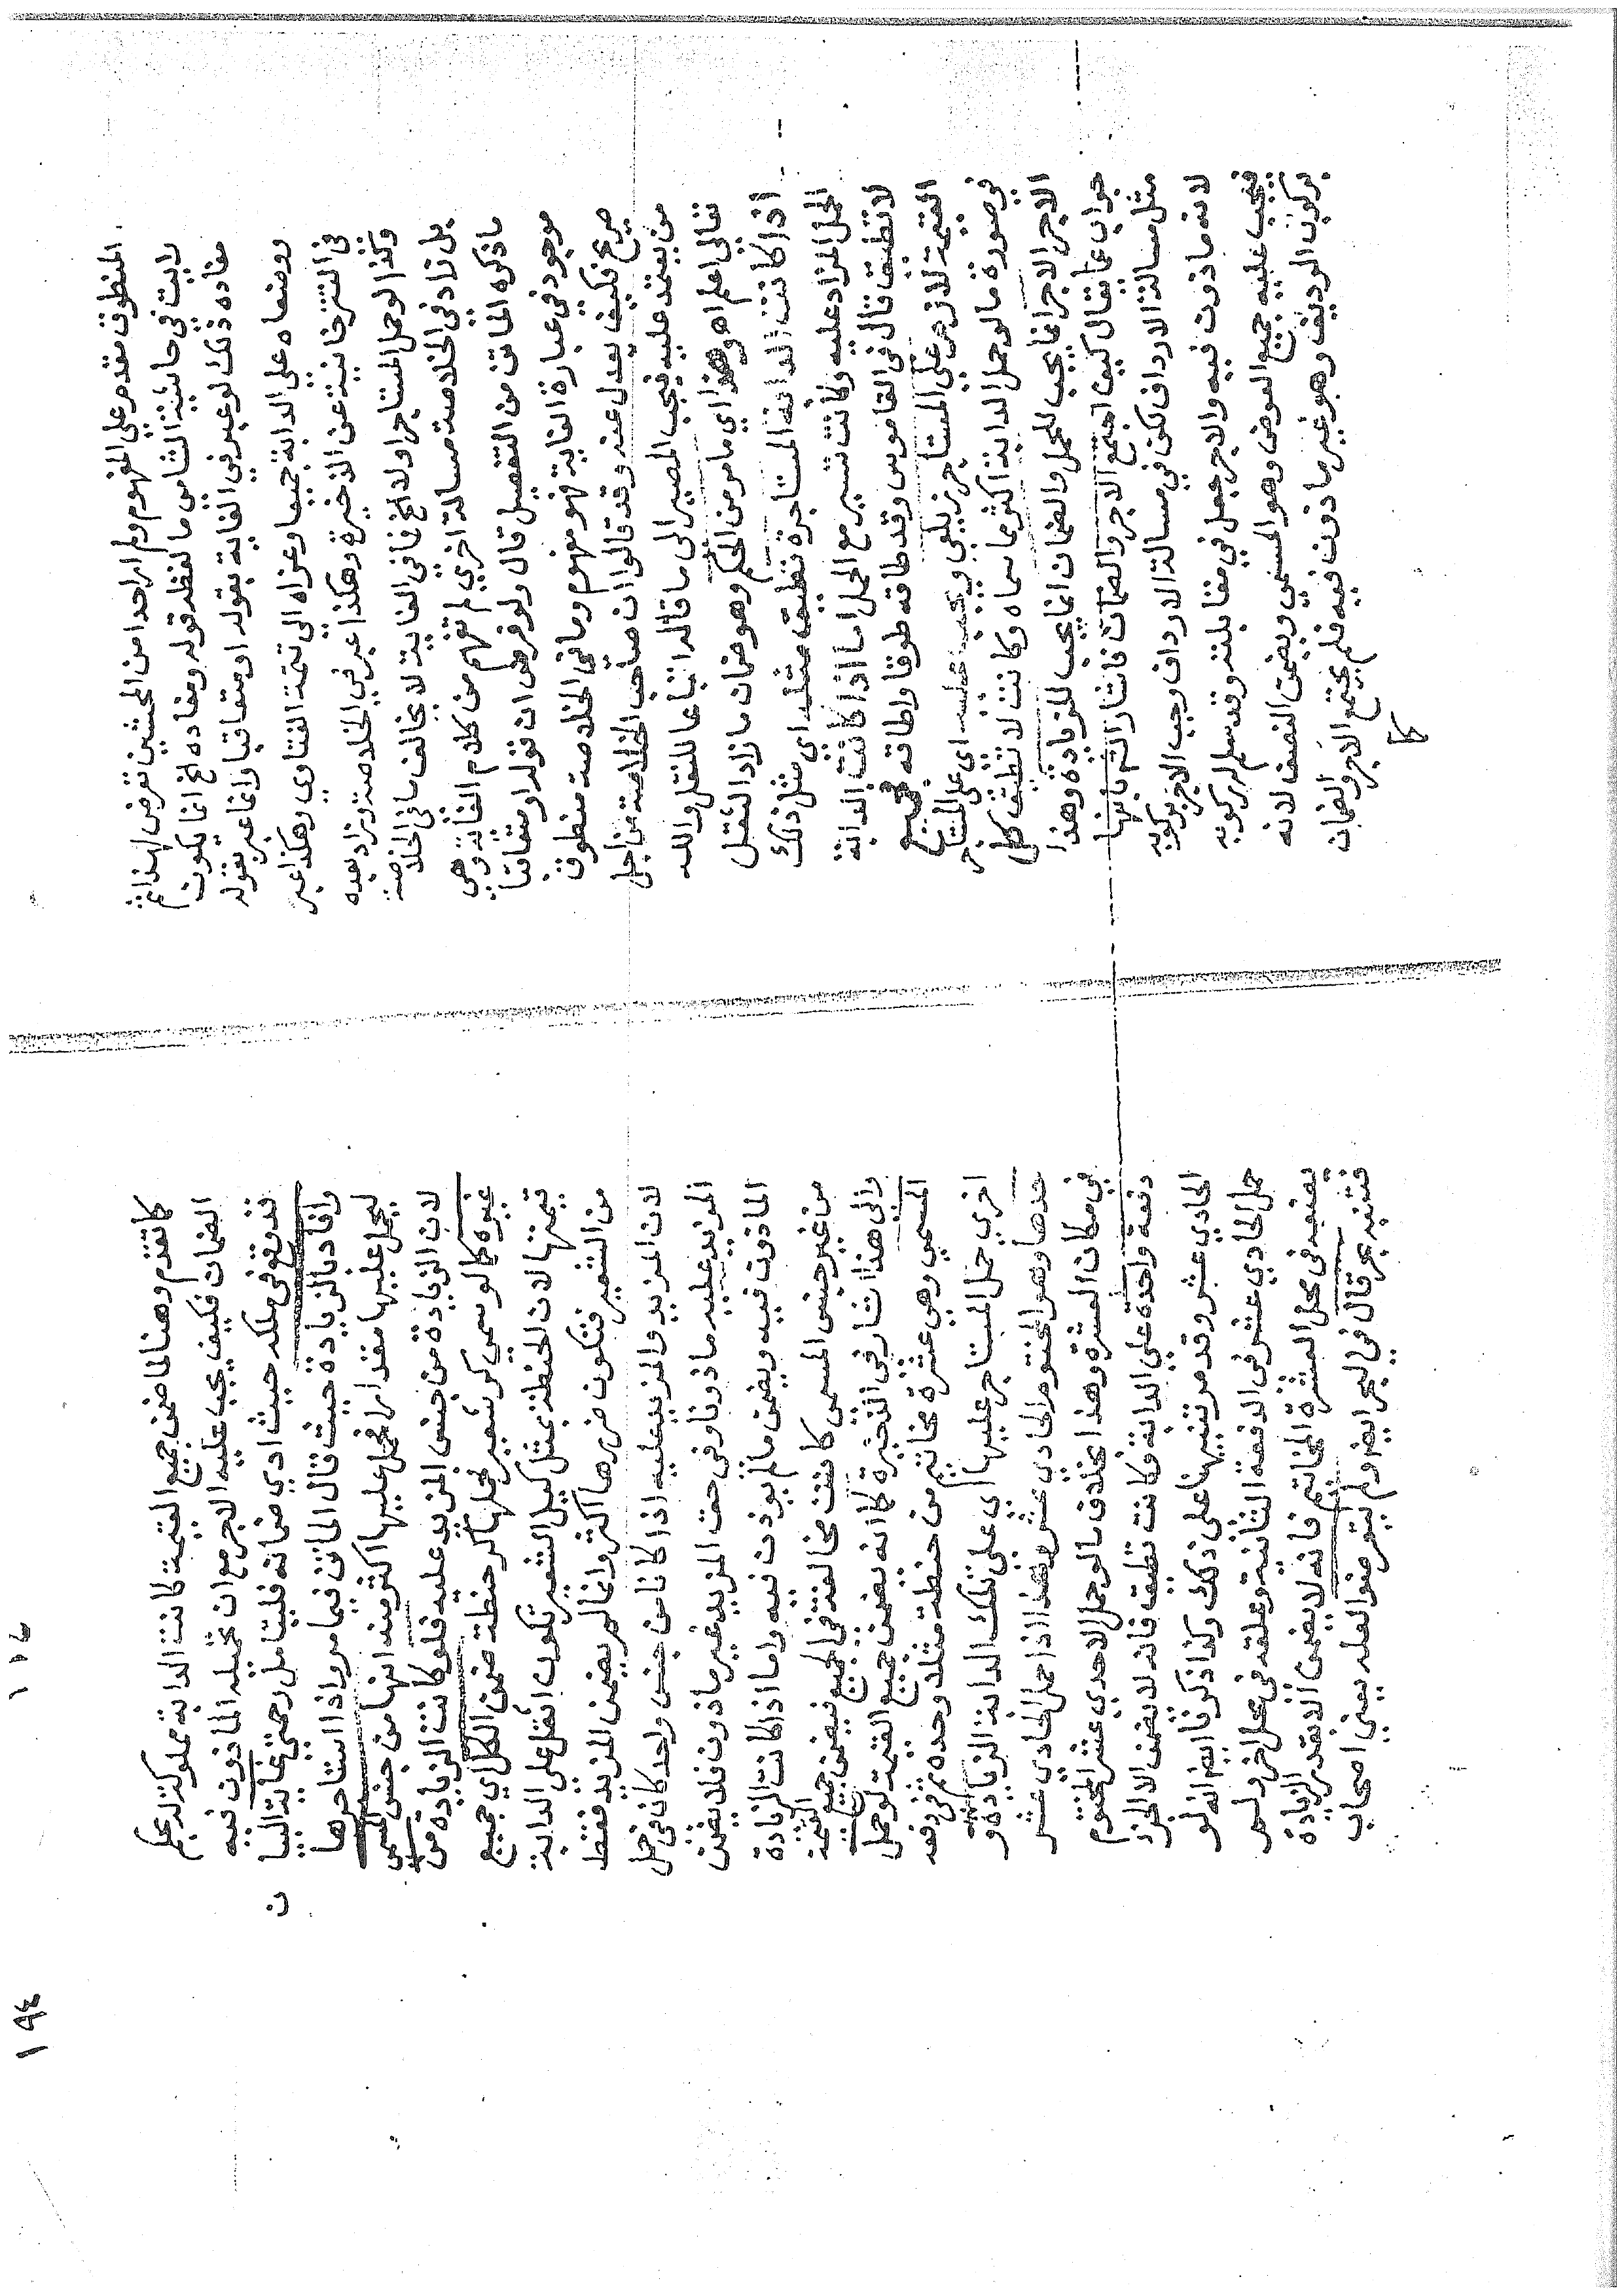 المنطوق مقدم علي المفهوم ولم ار احدا من المحشين تعرض لهذا ثم
رايت في حاشية الشامي ما لفظه قوله ومفاده الخ انما يكون
مفاده ذلك لو عبر في الغاية بقوله او متعاقبا وانما عبر بقوله
ووضعاه علي الدابة جميعا وعزاه الي تتمة الفتاوي وهكذا عبر
في التترخانية عن الذخيرة وهكذا عبر في الخلاصة وزاد بعده
وكذا لو حمل المستاجر اولا الخ فما في الغاية لا يخالف ما في الخلاصة
بل زاد في الخلاصة مسالة اخري لم تفهم من كلام الغاية وهي
ما ذكره الماتن من التفصيل قال ولو فرض ان قوله او متعاقبا
موجود في عبارة الغاية فهو مفهوم وما في الخلاصة منطوق
صريح فكيف يعدل عنه وقد قالوا ان صاحب الخلاصة من اجل
من يعتمد عليه فيجب المصير الي ما قاله اتباعا للنقل والله
تعالي اعلم اهـ وهذا اي ما مر من الحكم وهو ضمان ما زاد الثقل
اذا كانت الدابة المستاجرة تطيق مثله اي مثل ذلك
الحمل المزاد عليه وكانت تسير مع الحمل اما اذا كانت الدابة
لا تطيق قال في القاموس وقد طاقه طوقا واطاقه فجميع
القيمة لازم علي المستاجر زيلعي ويجب عليه اي علي المستاجر
في صورة ما لو حمل الدابة اكثر مما سماه وكانت لا تطيق كل
الاجر الاجر انما يجب للحمل والضمان انما يجب للزيادة وهذا
جواب عما يقال كيف اجتمع الاجر والضمان فاشار الشم بانها
مثل مسالة الارداف لكن في مسالة الارداف وجب الاجر بركوبه
لانه ماذون فيه والاجر جعل في مقابلته وقد سلم له ركوبه
فيجب عليه جميع العوض وهو المسمي ويضمن النصف لانه
بركوب الرديف وهو غير ماذون فيه فلم يجتمع الاجر والضمان
كما
كما تقدم وهنا لما ضمن جميع القيمة كانت الدابة مملوكة له بحكم
الضمان فكيف يجب عليه الاجر مع ان تحميله الماذون فيه
قد وقع في ملكه حيث ادي ضمانه فليتامل رحمتي غاية البيا
ن
وافاد بالزيادة حيث قال الماتن فيما مر واذا استاجرها
ليحمل عليها مقدارا فحمل عليها اكثر منه انها من جنس المسمي
لان الزيادة من جنس المزيد عليه فلو كانت الزيادة من
غيره كما لو سمي كر شعير فحملها كر حنطة ضمن الكل اي جميع
قيمتها لان الحنطة بمثل كيل الشعير تكون اثقل علي الدابة
من الشعير فتكون ضررها اكثر وانما لم يضمن المزيد فقط
لان المزيد والمزيد عليه اذا كانا من جنس واحد كان في حمل
المزيد عليه ماذونا وفي حق المزيد غير ماذون فلا يضمن
الماذون فيه ويضمن ما لم يوذن فيه واما اذا كانت الزيادة
من غير جنس المسمي كانت مخالفة في الجميع فيضمن جميع القيمة
والي هذا اشار في الذخيرة كما انه يضمن جميع القيمة لو حمل
المسمي وهي عشرة مخاتيم من حنطة مثلا وحده ثم في دفعة
اخري حمل المستاجر عليها اي علي تلك الدابة الزيادة و
حدها وهو المختوم الحادي عشر وهذا اذا حمل الحادي عشر
في مكان العشرة وهذا بخلاف ما لو حمل الاحدي عشر المختوم
دفعة واحدة علي الدابة وكانت تطيق فانه لا يضمن الا الجزء
الحادي عشر وقد مر تنبيهنا علي ذلك وكذا ذكرنا ايضا انه لو
حمل الحادي عشر في الدفعة الثانية وعلقه في محل اخر ولم
يضعه في محل العشرة المخاتيم فانه لا يضمن الا بقدر الزيادة
فتنبه بحر قال في البحر ايضا ولم يتعرضوا له يعني اصحاب
١٩٤